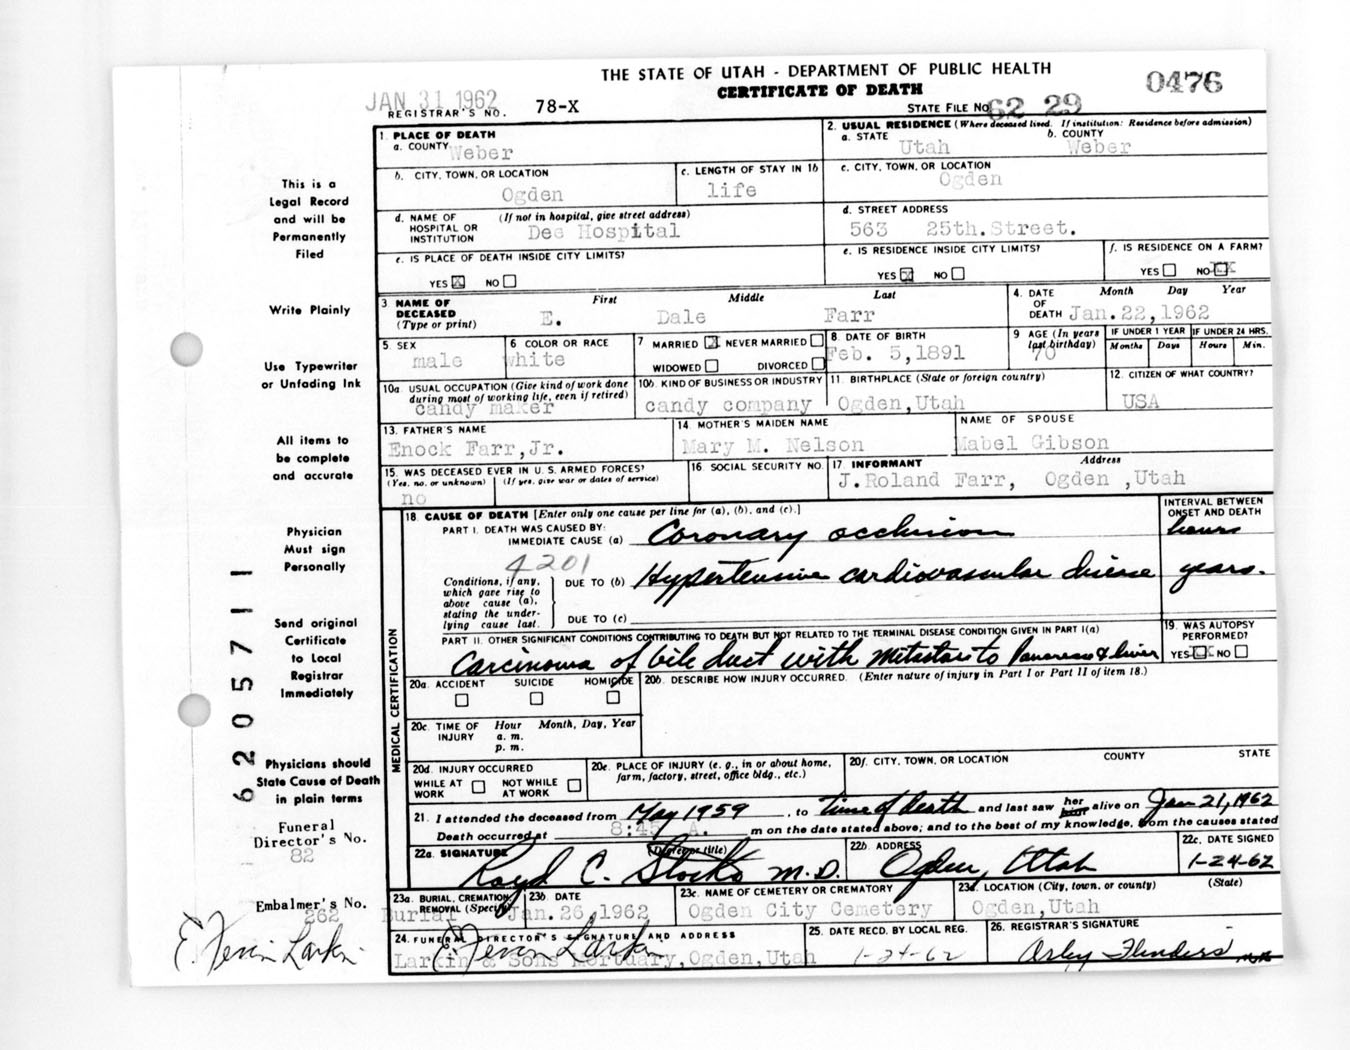 THE STATE OF UTAH - DEPARTMENT OF PUBLIC HEALTH
CERTIFICATE OF DEATH
0476
JAN 31 1962
REGISTRAR'S NO. 78-X
STATE FILE NO. 62 29
1. PLACE OF DEATH
a. COUNTY Weber
2. USUAL RESIDENCE (Where deceased lived. If institution: Residence before admission)
a. STATE Utah b. COUNTY Weber
b. CITY, TOWN, OR LOCATION Ogden
c. LENGTH OF STAY IN 1b life
c. CITY, TOWN, OR LOCATION Ogden
d. NAME OF HOSPITAL OR INSTITUTION (If not in hospital, give street address) Dee Hospital
d. STREET ADDRESS 563 25th.Street.
e. IS PLACE OF DEATH INSIDE CITY LIMITS?
YES X NO
e. IS RESIDENCE INSIDE CITY LIMITS?
YES X NO
f. IS RESIDENCE ON A FARM?
YES NO XX
3. NAME OF DECEASED (Type or print) First Middle Last
E. Dale Farr
4. DATE OF DEATH Month Day Year
Jan.22,1962
5. SEX male
6. COLOR OR RACE white
7. MARRIED X NEVER MARRIED
WIDOWED DIVORCED
8. DATE OF BIRTH Feb. 5,1891
9. AGE (In years last birthday) 70
IF UNDER 1 YEAR Months Days
IF UNDER 24 HRS. Hours Min.
10a. USUAL OCCUPATION (Give kind of work done during most of working life, even if retired)
candy maker
10b. KIND OF BUSINESS OR INDUSTRY
candy company
11. BIRTHPLACE (State or foreign country)
Ogden,Utah
12. CITIZEN OF WHAT COUNTRY?
USA
13. FATHER'S NAME
Enock Farr,Jr.
14. MOTHER'S MAIDEN NAME
Mary M. Nelson
NAME OF SPOUSE
Mabel Gibson
15. WAS DECEASED EVER IN U. S. ARMED FORCES?
(Yes, no, or unknown) (If yes, give war or dates of service)
no
16. SOCIAL SECURITY NO.
17. INFORMANT Address
J.Roland Farr, Ogden ,Utah
18. CAUSE OF DEATH [Enter only one cause per line for (a), (b), and (c).]
INTERVAL BETWEEN ONSET AND DEATH
PART I. DEATH WAS CAUSED BY:
IMMEDIATE CAUSE (a) Coronary occlusion hours
4201
Conditions, if any, which gave rise to above cause (a), stating the underlying cause last.
DUE TO (b) Hypertensive cardiovascular disease years.
DUE TO (c)
PART II. OTHER SIGNIFICANT CONDITIONS CONTRIBUTING TO DEATH BUT NOT RELATED TO THE TERMINAL DISEASE CONDITION GIVEN IN PART I(a)
Carcinoma of bile duct with metastasis to Pancreas & liver
19. WAS AUTOPSY PERFORMED?
YES X NO
20a. ACCIDENT SUICIDE HOMICIDE
20b. DESCRIBE HOW INJURY OCCURRED. (Enter nature of injury in Part I or Part II of item 18.)
20c. TIME OF INJURY Hour Month, Day, Year
a. m.
p. m.
20d. INJURY OCCURRED
WHILE AT WORK NOT WHILE AT WORK
20e. PLACE OF INJURY (e. g., in or about home, farm, factory, street, office bldg., etc.)
20f. CITY, TOWN, OR LOCATION COUNTY STATE
21. I attended the deceased from May 1959, to time of death and last saw her him alive on Jan 21, 1962
Death occurred at 8:45 A. m on the date stated above; and to the best of my knowledge, from the causes stated
22a. SIGNATURE (Degree or title)
Loyd C. Stocks M.D.
22b. ADDRESS
Ogden, Utah
22c. DATE SIGNED
1-24-62
23a. BURIAL, CREMATION, REMOVAL (Specify)
Burial
23b. DATE
Jan.26,1962
23c. NAME OF CEMETERY OR CREMATORY
Ogden City Cemetery
23d. LOCATION (City, town, or county) (State)
Ogden,Utah
24. FUNERAL DIRECTOR'S SIGNATURE AND ADDRESS
E. Nevin Larkin
Larkin & Sons Mortuary,Ogden,Utah
25. DATE RECD. BY LOCAL REG.
1-24-62
26. REGISTRAR'S SIGNATURE
Orley Flinders
MEDICAL CERTIFICATION
This is a
Legal Record
and will be
Permanently
Filed
Write Plainly
Use Typewriter
or Unfading Ink
All items to
be complete
and accurate
Physician
Must sign
Personally
Send original
Certificate
to Local
Registrar
Immediately
Physicians should
State Cause of Death
in plain terms
Funeral
Director's No.
82
Embalmer's No.
262
E. Nevin Larkin
6205711